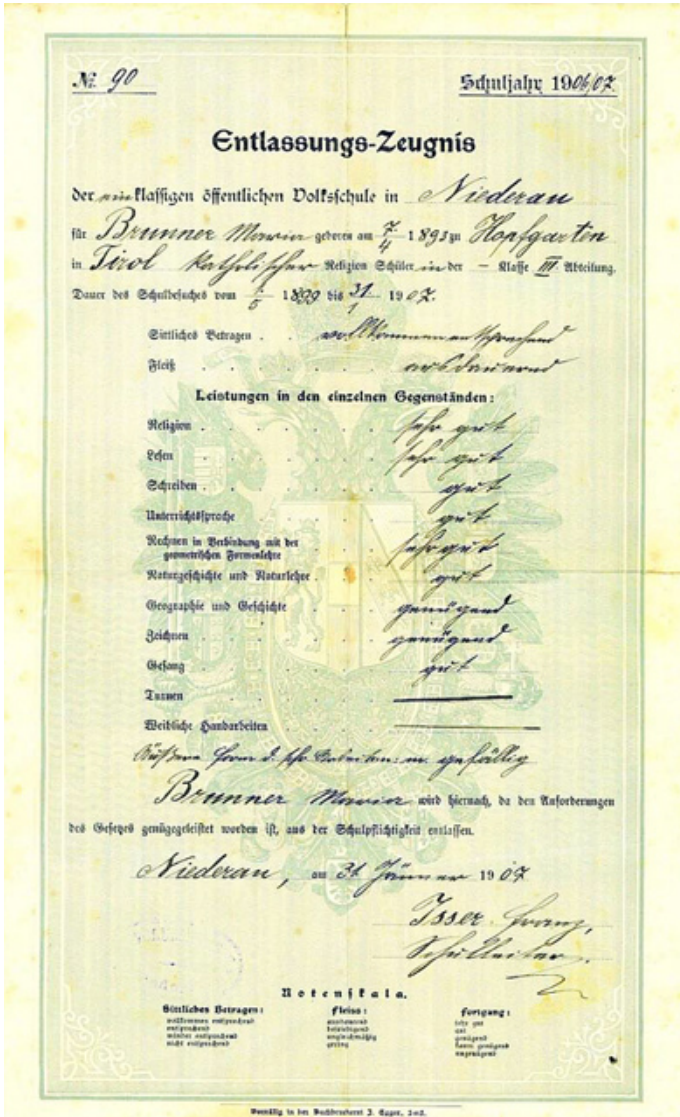 № 90 Schuljahr 1906/07.
Entlassungs-Zeugnis
der einklassigen öffentlichen Volksschule in Niederau
für Brunner Maria geboren am 7/4 1893 zu Hopfgarten
in Tirol katholischer Religion Schülerin der – Klasse III. Abteilung.
Dauer des Schulbesuches vom 1/5 1899 bis 31/1 1907.
Sittliches Betragen . . vollkommen entsprechend
Fleiß ausdauernd
Leistungen in den einzelnen Gegenständen:
Religion . . . . . . sehr gut
Lesen . . . . . . sehr gut
Schreiben . . . . . . gut
Unterrichtssprache . . . . gut
Rechnen in Verbindung mit der
geometrischen Formenlehre . . . sehr gut
Naturgeschichte und Naturlehre . . . gut
Geographie und Geschichte . . . genügend
Zeichnen . . . . . genügend
Gesang . . . . . gut
Turnen . . . . .
Weibliche Handarbeiten . . .
Äußere Form d. schr. Arbeiten: m. gefällig
Brunner Maria wird hiernach, da den Anforderungen
des Gesetzes genügegeleistet worden ist, aus der Schulpflichtigkeit entlassen.
Niederau, am 31. Jänner 1907
Isser Franz,
Schulleiter.
Notenskala.
Sittliches Betragen: Fleiss: Fortgang:
vollkommen entsprechend ausdauernd sehr gut
entsprechend befriedigend gut
minder entsprechend ungleichmäßig genügend
nicht entsprechend gering kaum genügend
ungenügend
Vorrätig in der Buchdruckerei J. Egger, Imst.